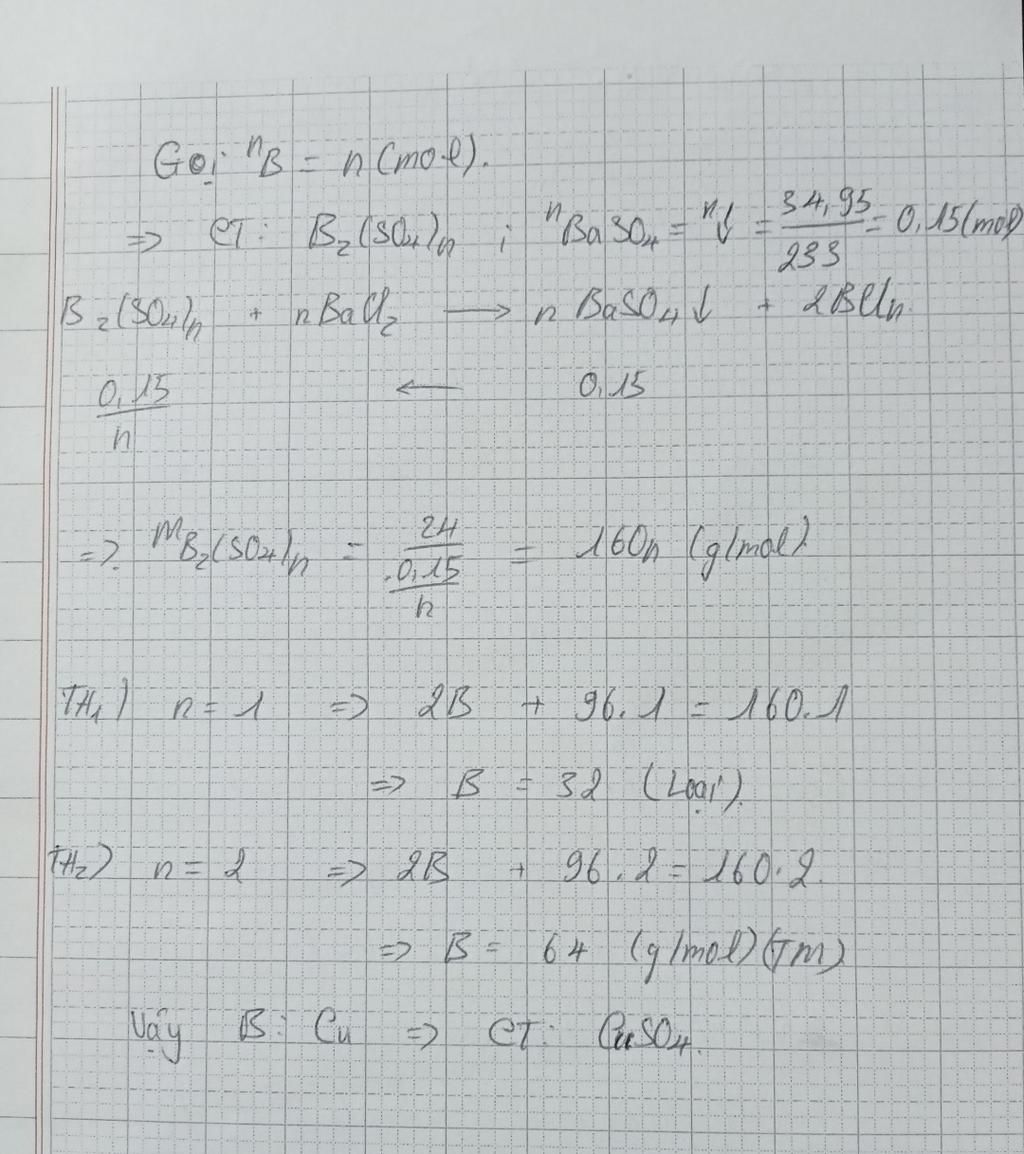 Gọi nB = n (mol).
=> CT: B2(SO4)n ; nBaSO4 = n↓ = 34,95/233 = 0,15 (mol)
B2(SO4)n + nBaCl2 → nBaSO4↓ + 2BCln
0,15/n ← 0,15
=> MB2(SO4)n = 24/(0,15/n) = 160n (g/mol)
TH1) n = 1 => 2B + 96.1 = 160.1
=> B = 32 (Loại).
TH2) n = 2 => 2B + 96.2 = 160.2.
=> B = 64 (g/mol) (TM)
Vậy B: Cu => CT: CuSO4.